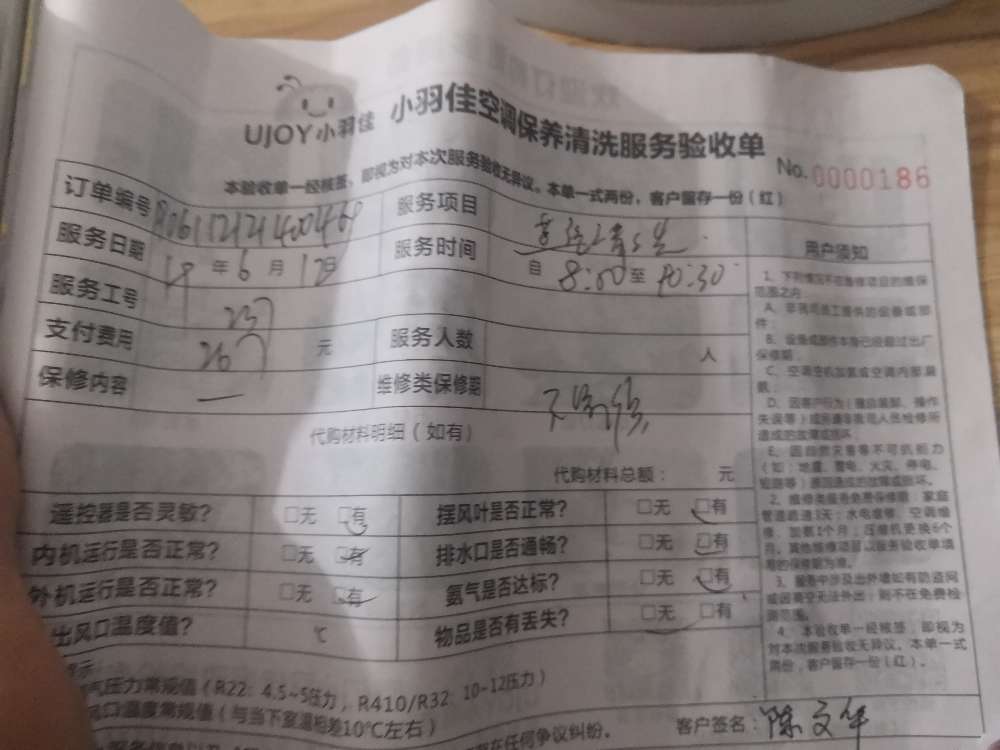 UJOY小羽佳 小羽佳空调保养清洗服务验收单
No.0000186
本验收单一经核签，即视为对本次服务验收无异议。本单一式两份，客户留存一份（红）
订单编号 服务项目
服务日期 19年6月17日 服务时间 自8:00至10:30
用户须知
服务工号 237
支付费用 267元 服务人数 人
保修内容 — 维修类保修期
代购材料明细（如有）
代购材料总额： 元
遥控器是否灵敏？ □无 □有 摆风叶是否正常？ □无 □有
内机运行是否正常？ □无 □有 排水口是否通畅？ □无 □有
外机运行是否正常？ □无 □有 氨气是否达标？ □无 □有
出风口温度值？ ℃ 物品是否有丢失？ □无 □有
1、下列情况不在维修项目的维保
范围之内：
A、非我司员工提供的设备或部
件；
B、设备或部件本身已经超过出厂
保修期；
D、因客户行为（擅自装卸、操作
失误等）或
造成的故障或损坏；
E、因自然灾害等不可抗拒力
（如：地震、雷电、火灾、停电、
2、维修类服务免费保修期：家庭
管道疏通3天；水电维修、空调维
修、加氨1个月；压缩机更换6个
月。其他维修项目以服务验收单填
写的保修期为准。
3、服务中涉及出外墙如有防盗网
或因高空无法外出，则不在免费检
测范围。
4、本验收单一经核签，即视为
对本次服务验收无异议。本单一式
两份，客户留存一份（红）。
气压力常规值（R22：4.5~5压力，R410/R32：10-12压力）
风口温度常规值（与当下室温相差10℃左右）
在任何争议纠纷。
客户签名：陈文华